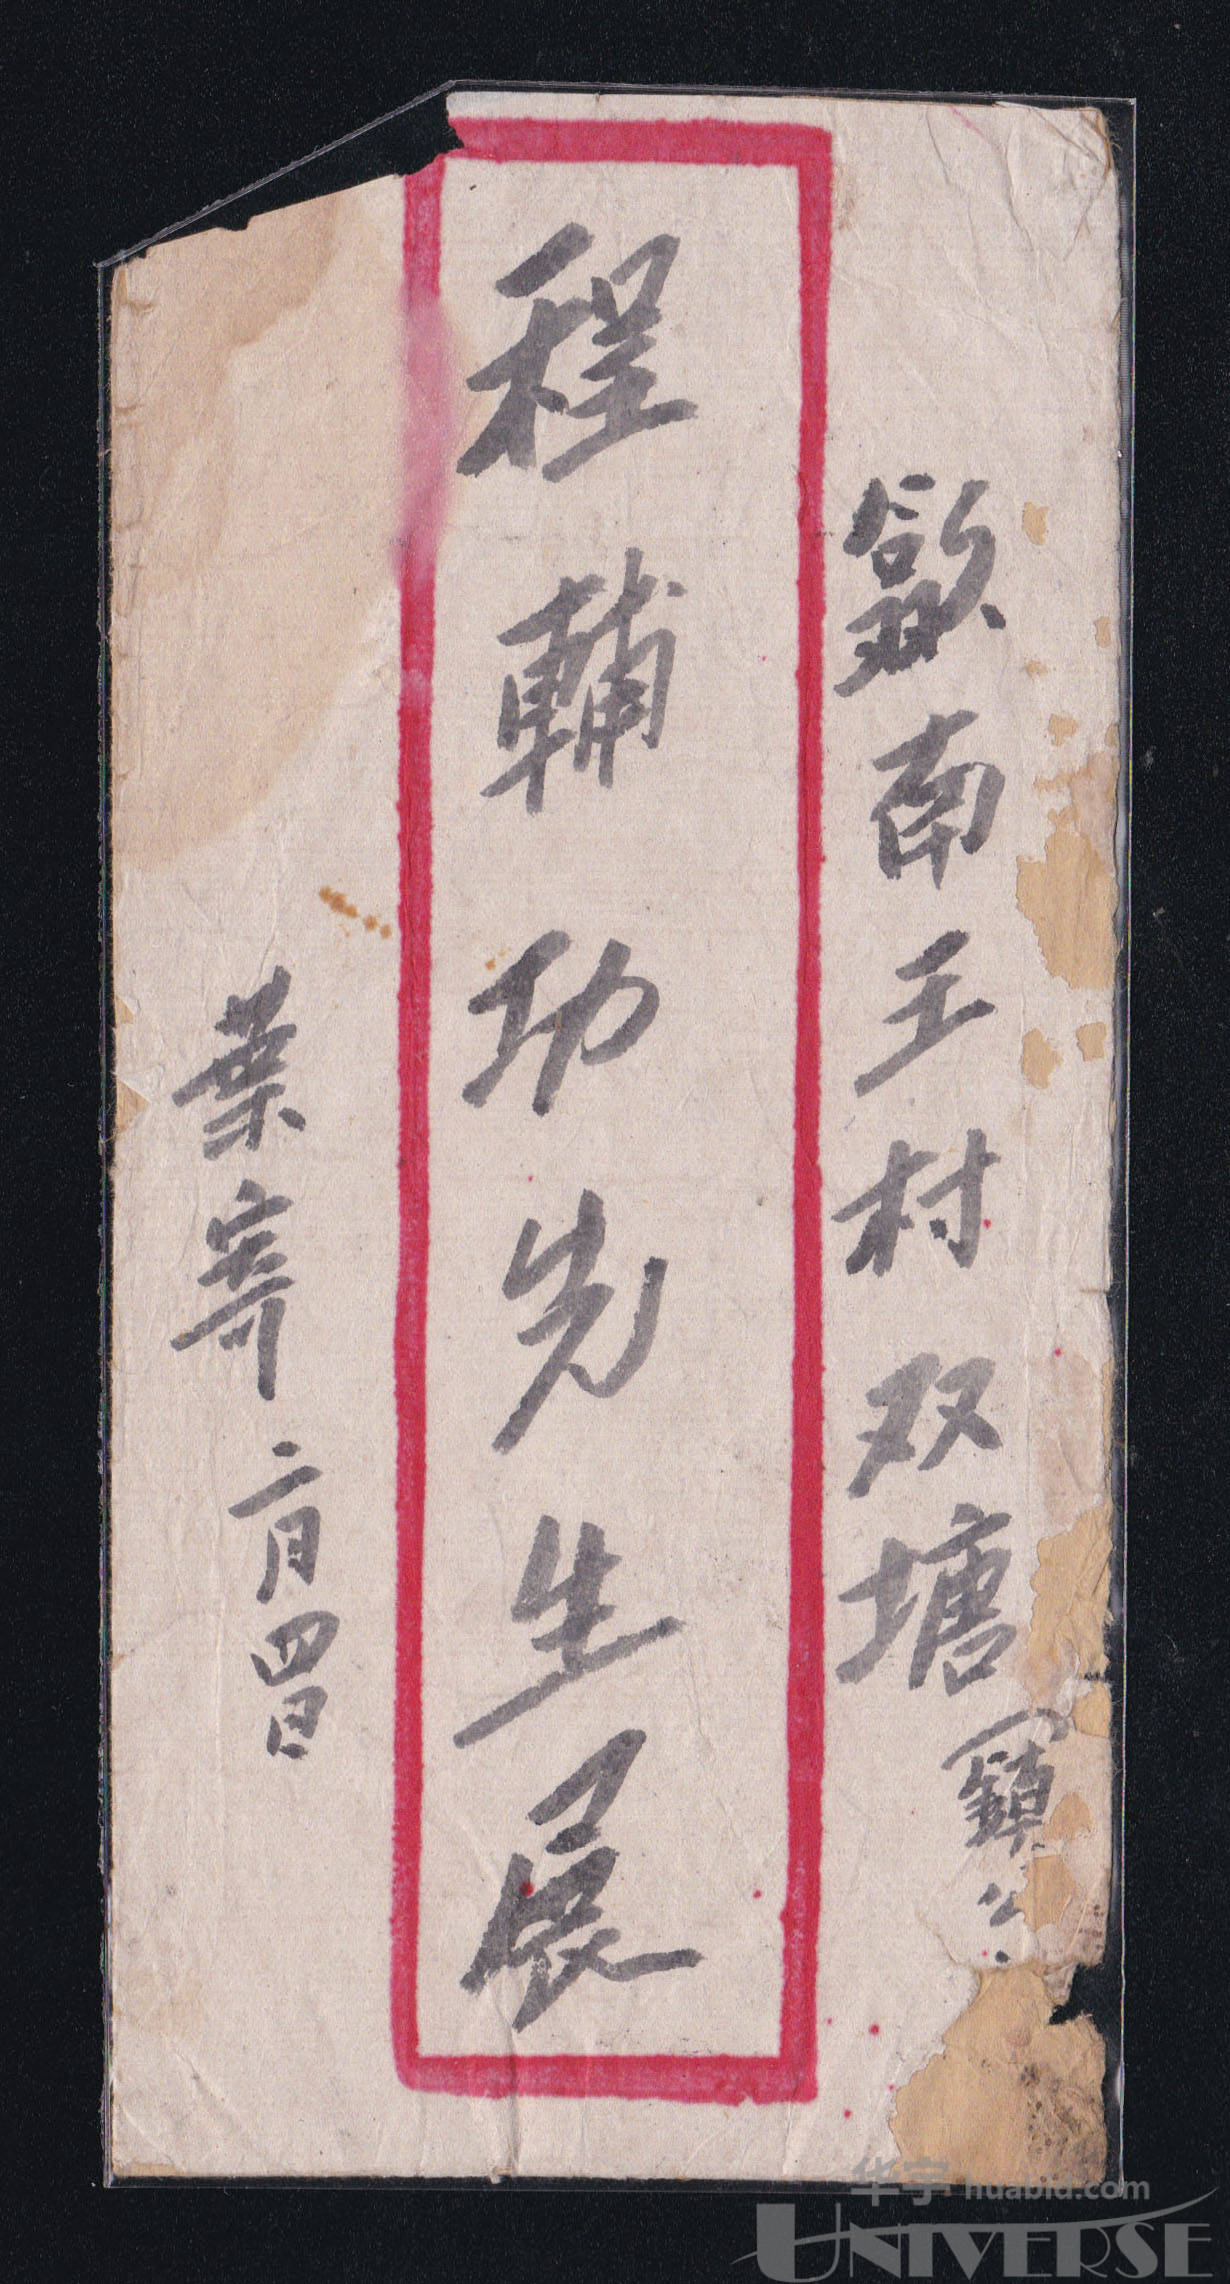 歙南王村双塘(鎮
程輔功先生展
葉寄 二月四日
华宇 huabid.com
UNIVERSE